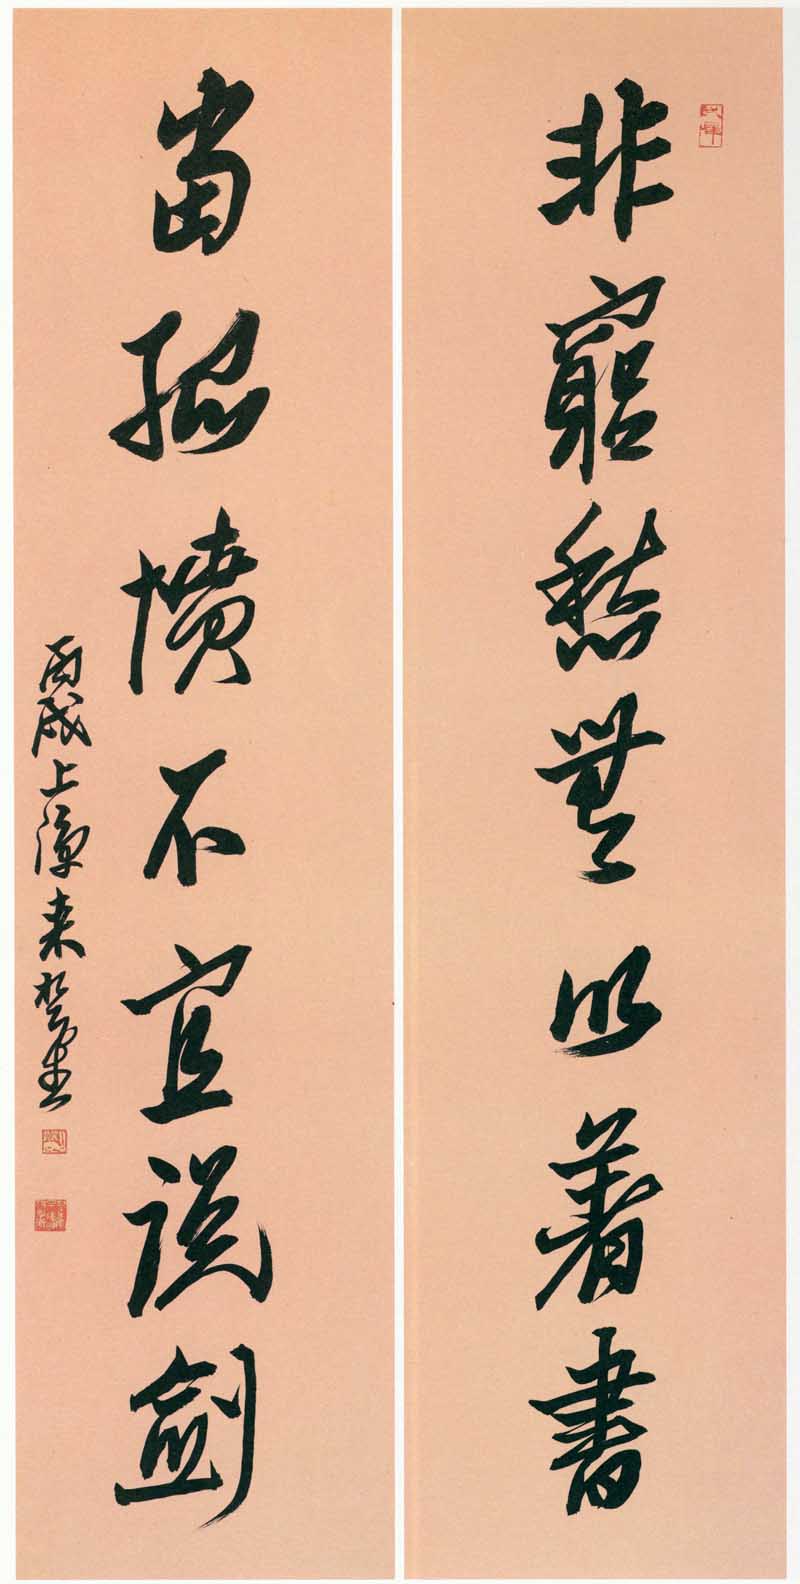 非窮愁無以著書
當孤憤不宜說劍
丙戌上漳來楚生